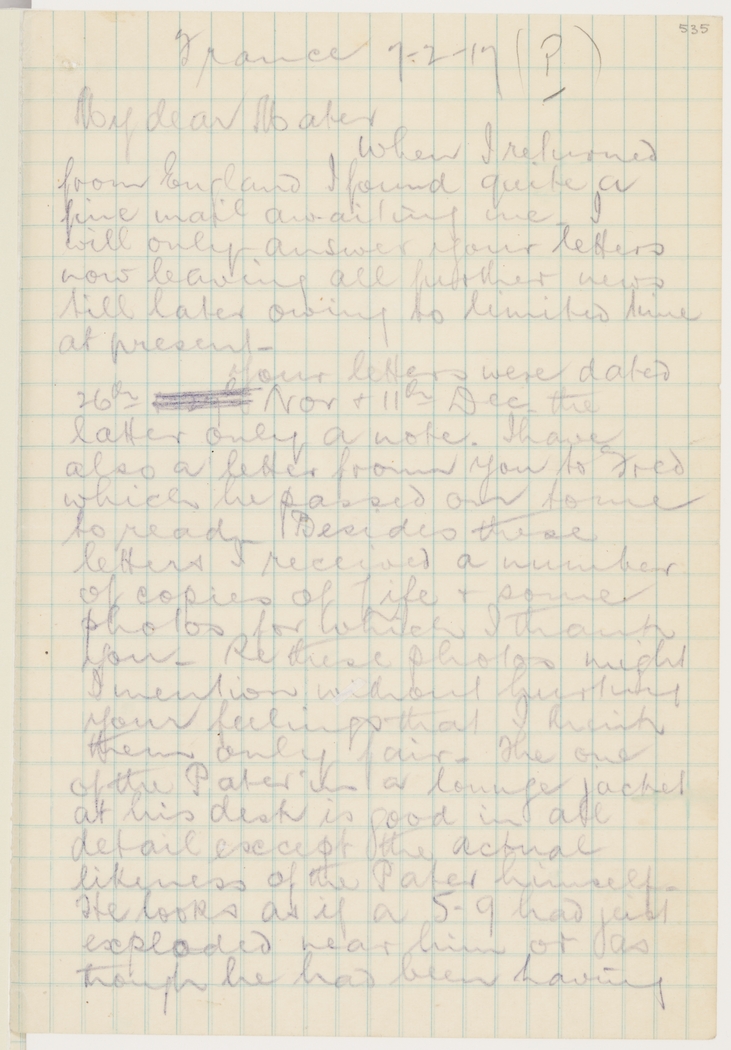 535
France 7-2-17 (P)
My dear Mater
When I returned
from England I found quite a
fine mail awaiting me I
will only answer your letters
now leaving all further news
till later owing to limited time
at present-
Your letters were dated
26th Nov + 11th Dec the
latter only a note. I have
also a letter from you to Fred
which he passed on to me
to read. Besides these
letters I received a number
of copies of Life + some
photos for which I thank
you- Re these photos might
I mention without hurting
your feelings that I think
them only fair- The one
of the Pater in a lounge jacket
at his desk is good in all
detail except the actual
likeness of the Pater himself-
He looks as if a 5-9 had just
exploded near him or as
though he had been having